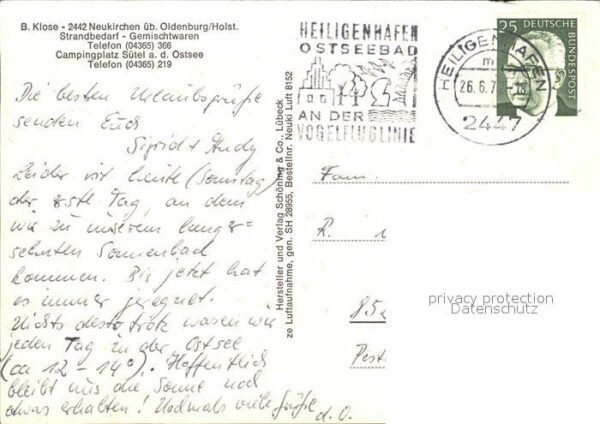 B. Klose - 2442 Neukirchen üb. Oldenburg/Holst.
Strandbedarf - Gemischtwaren
Telefon (04365) 366
Campingplatz Sütel a. d. Ostsee
Telefon (04365) 219
Die besten Urlaubsgrüße
senden Euch
Sigrid + Andy
Leider ist heute (Sonntag)
der erste Tag, an dem
wir zu unserem lang er=
sehnten Sonnenbad
kommen. Bis jetzt hat
es immer geregnet.
Nichts desto trotz waren wir
jeden Tag in der Ostsee
(ca 12 - 14°). Hoffentlich
bleibt uns die Sonne noch
etwas erhalten! Nochmals viele Grüße
d. O.
Hersteller und Verlag Schöning & Co., Lübeck
ze Luftaufnahme, gen. SH 28955, Bestellnr. Neuki Luft 8152
HEILIGENHAFEN
OSTSEEBAD
AN DER
VOGELFLUGLINIE
HEILIGENHAFEN
m
26.6.7
2447
25 DEUTSCHE
BUNDESPOST
Fam.
R.
85
Post
privacy protection
Datenschutz